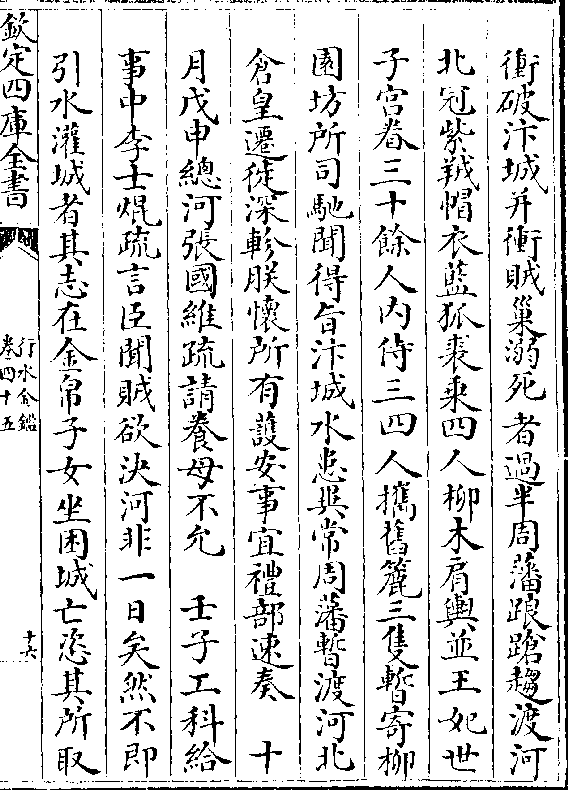 衝破汴城并衝賊巢溺死者過半周藩踉蹌趨渡河
北冠紫羢帽衣藍狐裘乘四人柳木肩輿並王妃世
子宫眷三十餘人内侍三四人攜舊簏三隻暫寄柳
園坊所司馳聞得旨汴城水患異常周藩暫渡河北
倉皇遷徙深軫朕懷所有護安事宜禮部速奏　十
月戊申總河張國維疏請養母不允　壬子工科給
事中李士焜疏言臣聞賊欲決河非一日矣然不即
引水灌城者其志在金帛子女坐困城亡恣其所取
欽定四庫全書
行水金鑑
卷四十五
十六